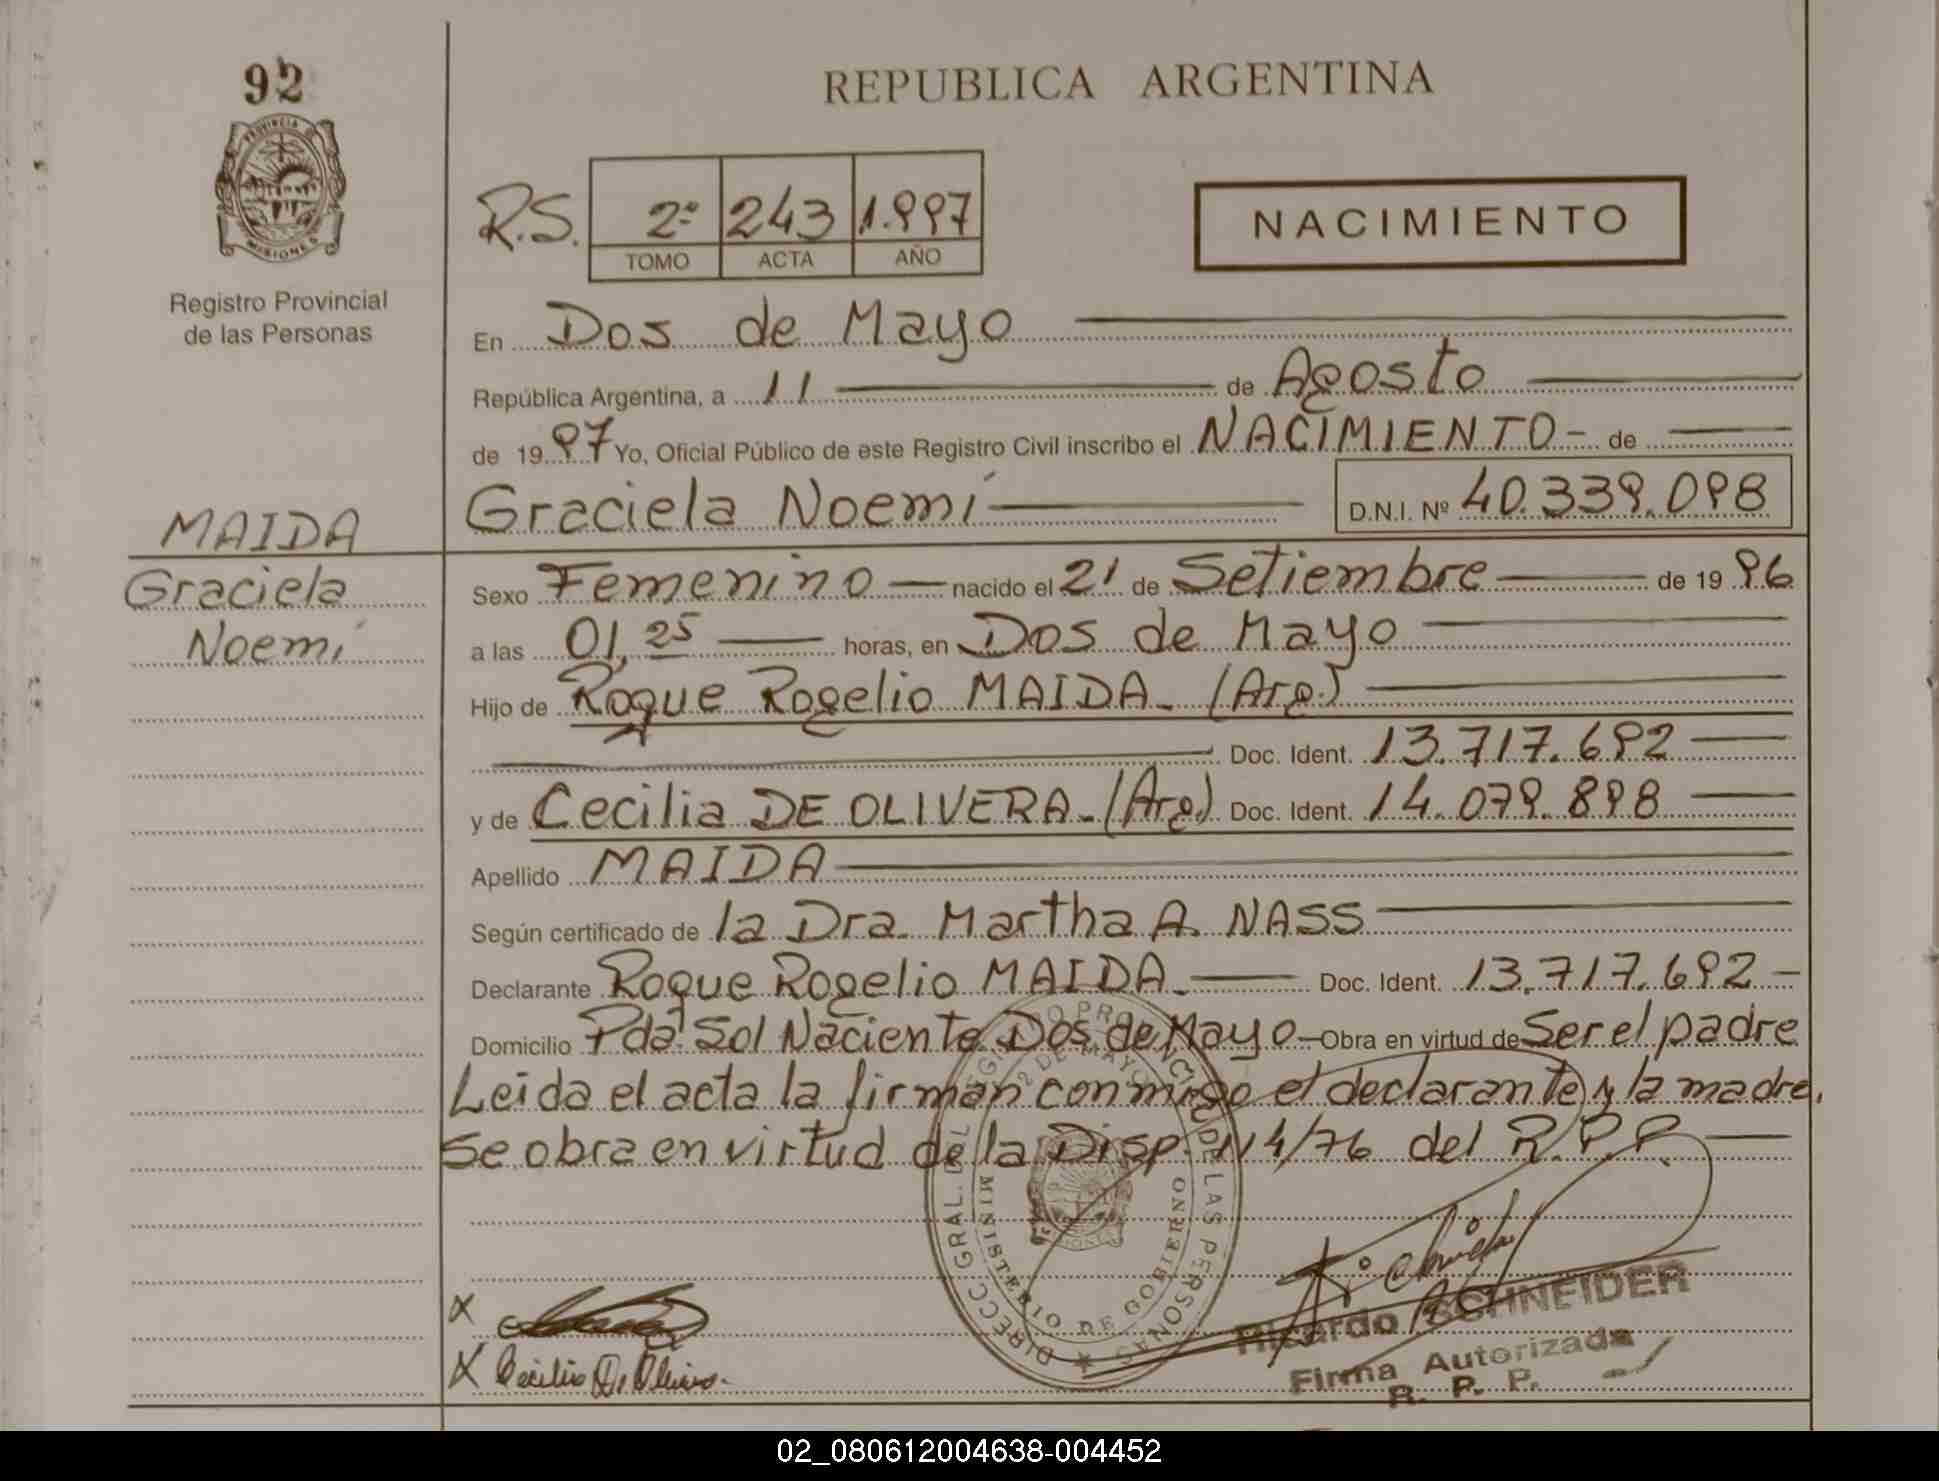 92
REPUBLICA ARGENTINA
PROVINCIA DE MISIONES
Registro Provincial
de las Personas
R.S. 2º 243 1.997
TOMO ACTA AÑO
NACIMIENTO
En Dos de Mayo
República Argentina, a 11 de Agosto
de 1997 Yo, Oficial Público de este Registro Civil inscribo el NACIMIENTO - de
Graciela Noemí D.N.I. Nº 40.339.098
MAIDA
Graciela
Noemí
Sexo Femenino nacido el 21 de Setiembre de 1996
a las 01,25 horas, en Dos de Mayo
Hijo de Roque Rogelio MAIDA. (Arg.)
Doc. Ident. 13.717.692
y de Cecilia DE OLIVERA. (Arg.) Doc. Ident. 14.079.898
Apellido MAIDA
Según certificado de la Dra. Martha A. NASS
Declarante Roque Rogelio MAIDA. Doc. Ident. 13.717.692
Domicilio Pda. Sol Naciente Dos de Mayo - Obra en virtud de Ser el padre
Leida el acta la firman conmigo el declarante y la madre.
Se obra en virtud de la Disp. 114/76 del R.P.P.
DIRECC GRAL. DEL REGISTRO PROVINCIAL DE LAS PERSONAS
2 DE MAYO
MINISTERIO DE GOBIERNO
X
X Cecilia D. Olivera.
Ricardo SCHNEIDER
Firma Autorizada
R. P. P.
02_080612004638-004452